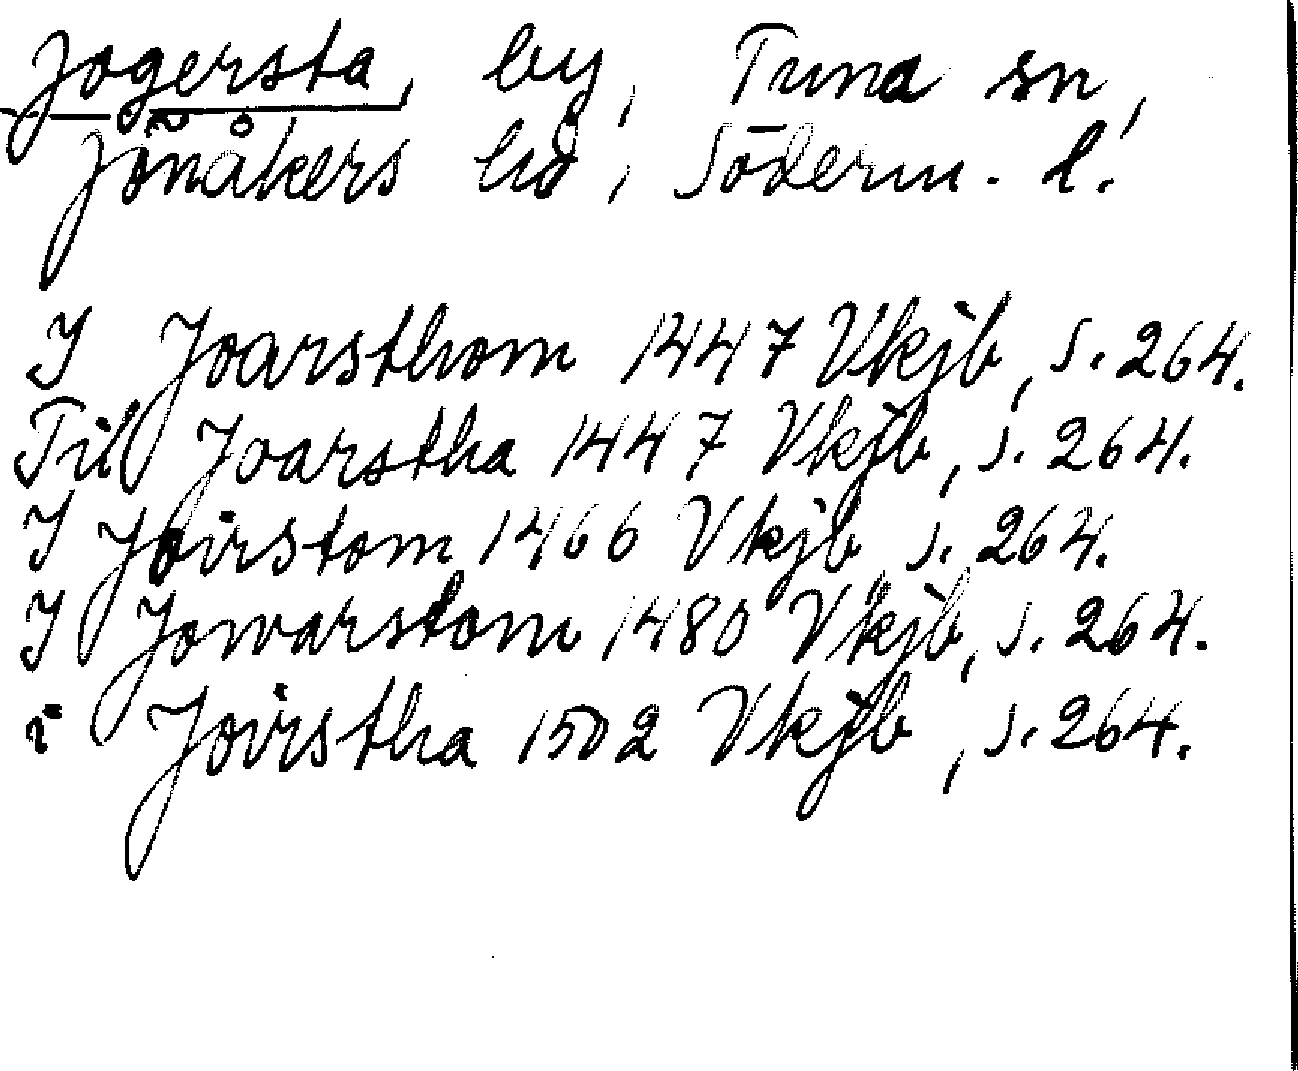 Jogersta, by, Tuna sn,
Jönåkers hd, Söderm. l.
I Joarsthom 1447 Vkjb, s. 264.
Till Joarstha 1447 Vkjb, s. 264.
I Joirstom 1466 Vkjb s. 264.
I Jowarstom 1480 Vkjb, s. 264.
i Joirstha 1502 Vkjb, s. 264.